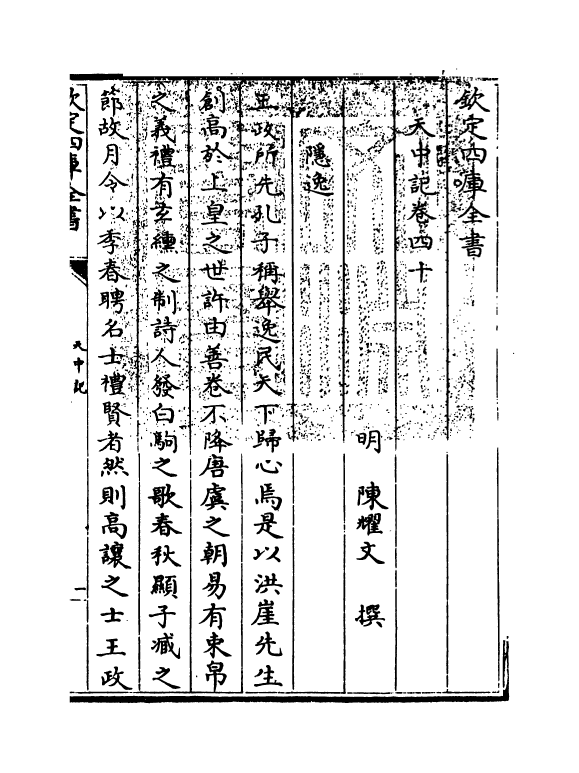 欽定四庫全書
天中記卷四十
明 陳耀文 撰
隱逸
王政所先孔子稱舉逸民天下歸心焉是以洪崖先生
創高於上皇之世許由善卷不降唐虞之朝易有束帛
之義禮有玄纁之制詩人發白駒之歌春秋顯子臧之
節故月令以季春聘名士禮賢者然則高讓之士王政
欽定四庫全書
天中記
一